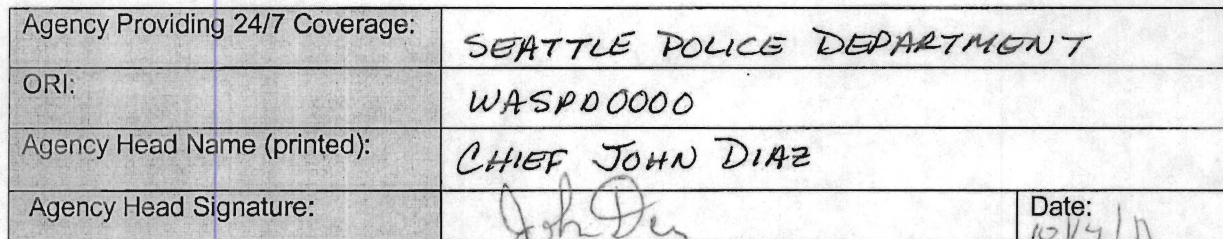 Agency Providing 24/7 Coverage: SEATTLE POLICE DEPARTMENT
ORI: WASPD0000
Agency Head Name (printed): CHIEF JOHN DIAZ
Agency Head Signature: John D Date: